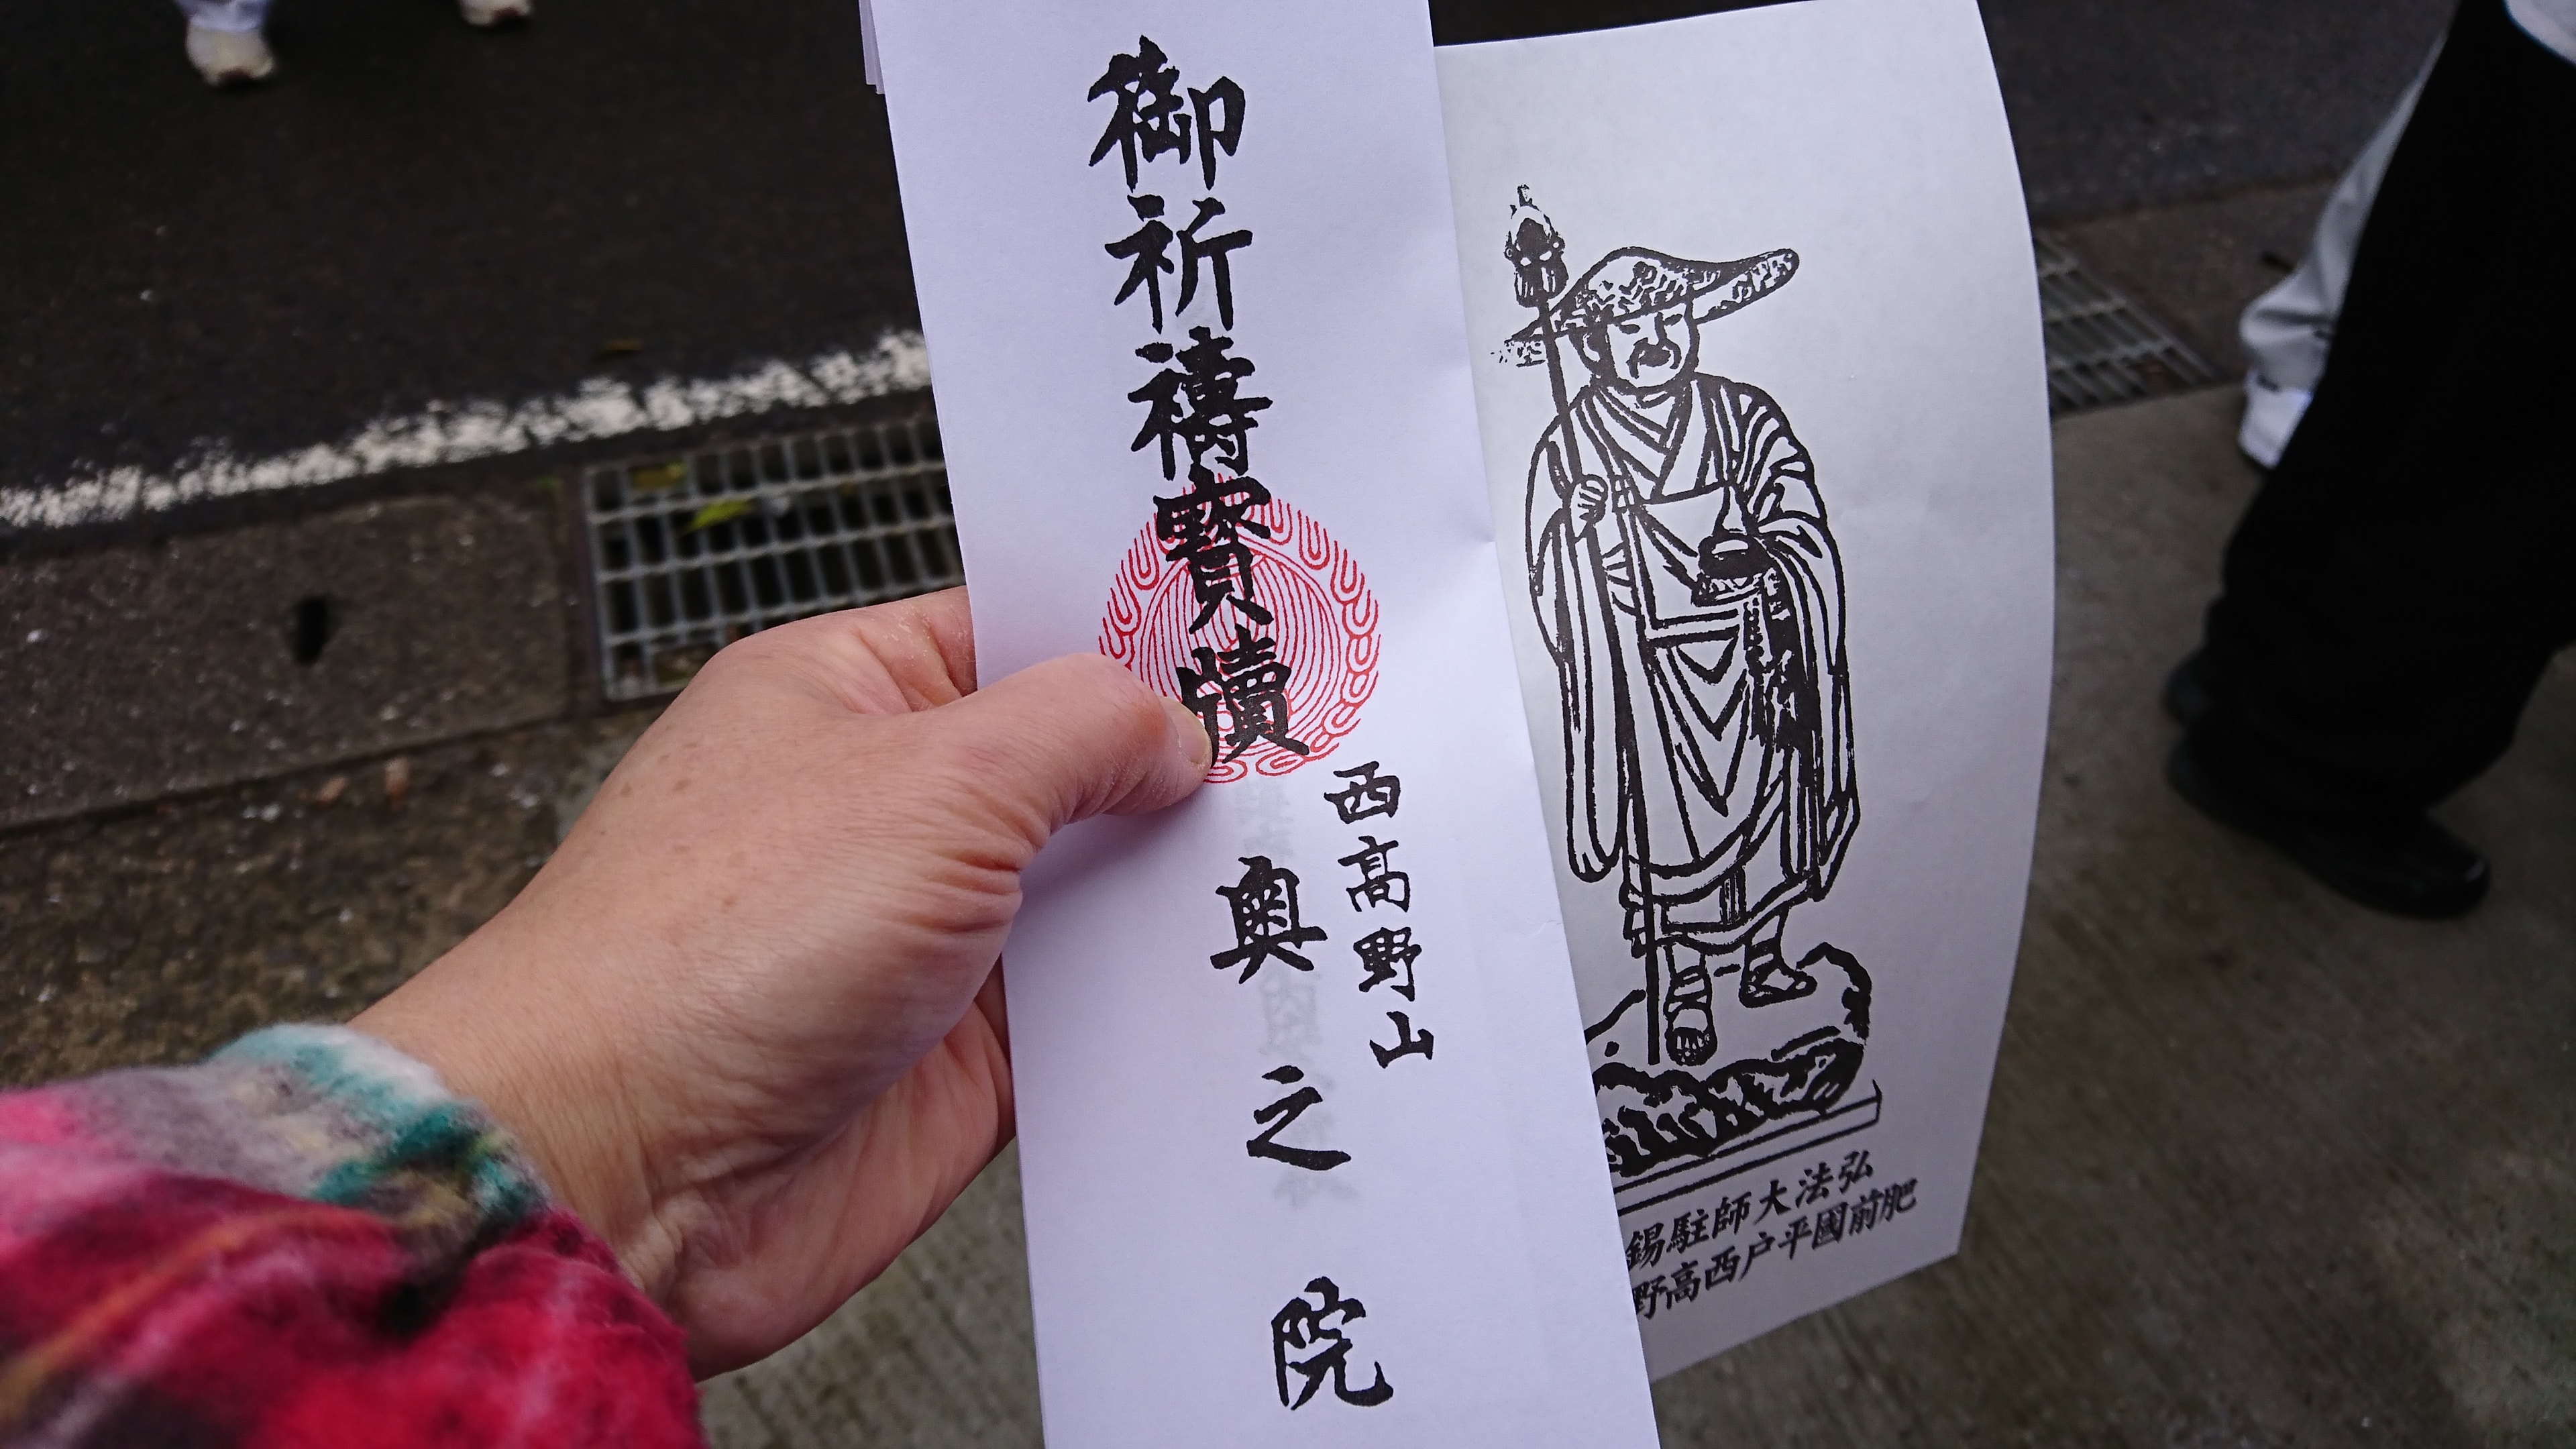 御祈禱寶牘
西高野山
奥之院
弘法大師駐錫
肥前國平戸西高野